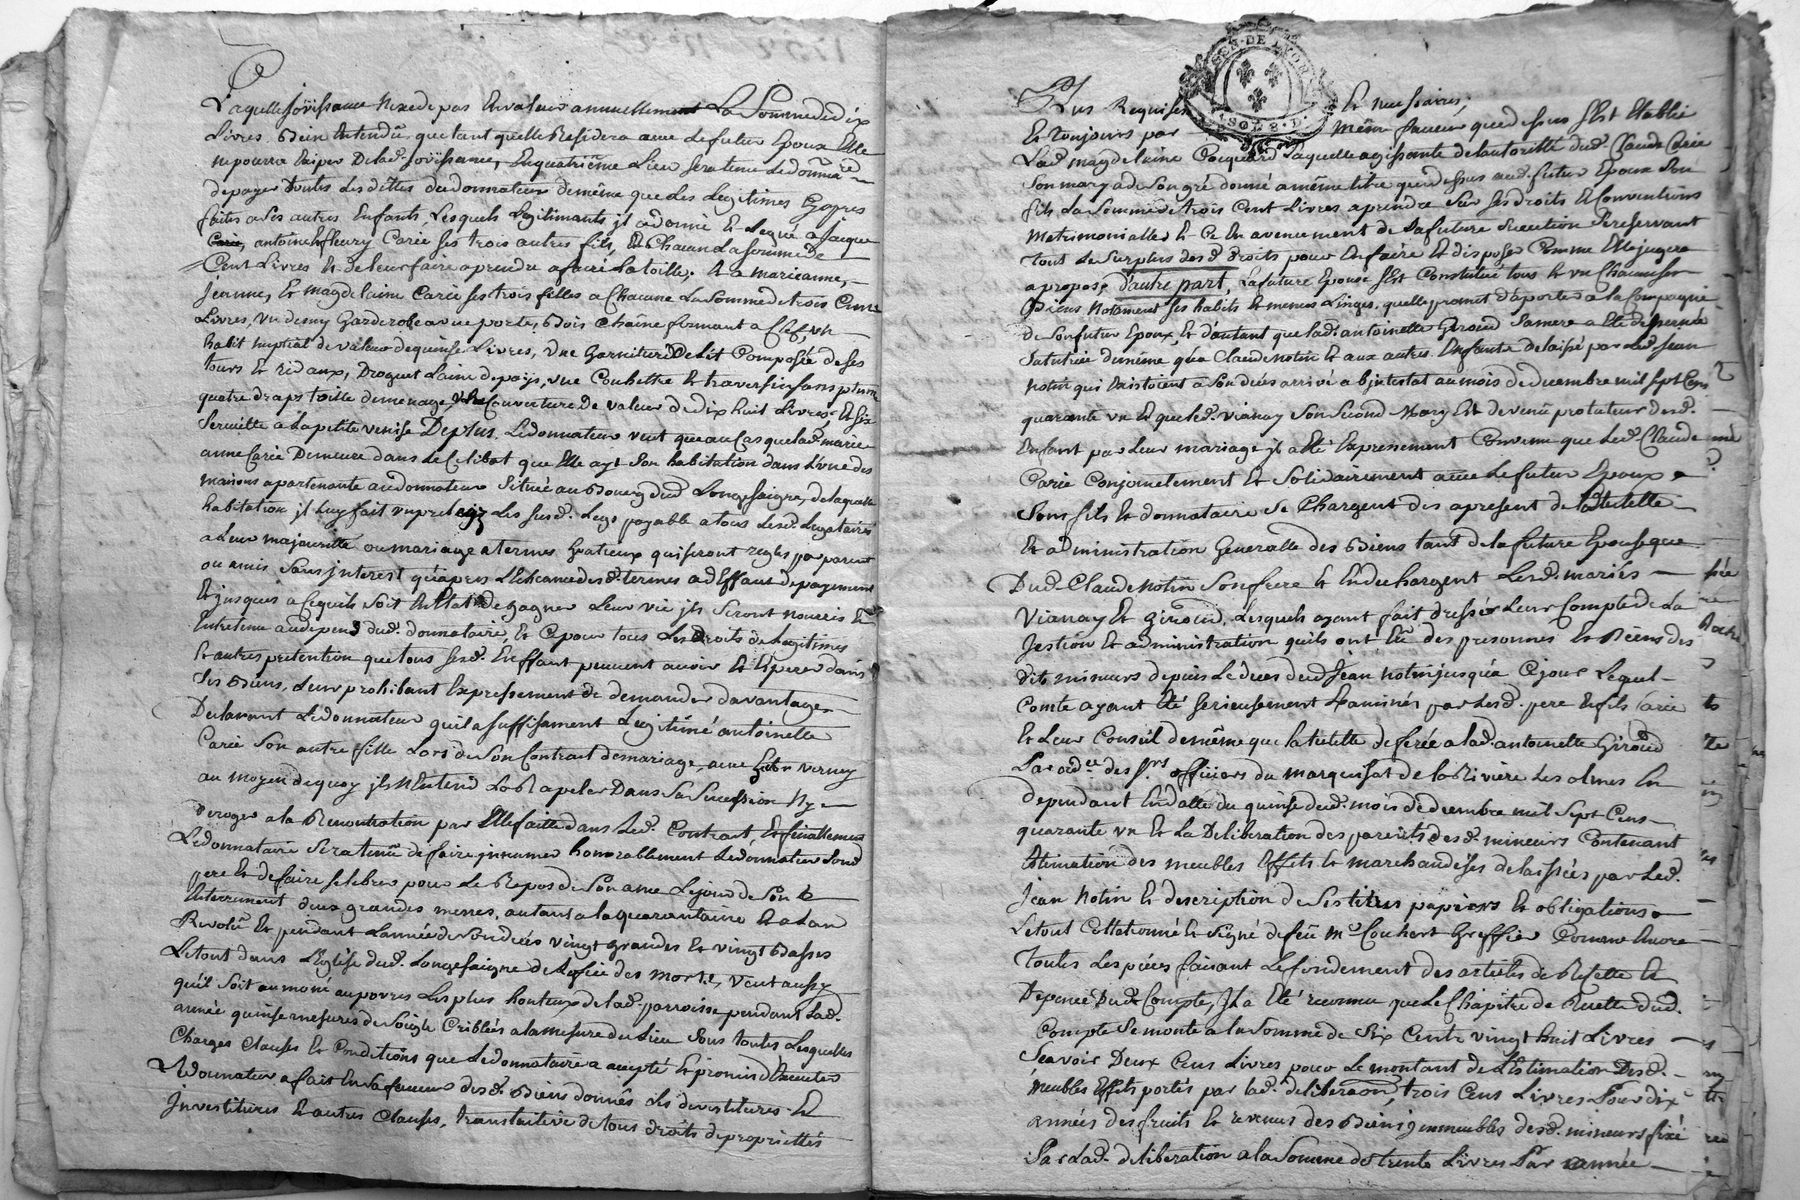 Laquelle joüissance n'excede pas en valeur annuellement La Somme de dix
Livres. Bien Entendû que tant quelle Residera avec Le futur Epoux Elle
ne pourra Exiger De lad. joüissance, En quatriême Lieu sera tenu Le donnatre
de payer toutes Les dêttes du donnateur de même que Les Legitimes Cy apres
faites a Ses autres Enfants Lesquels Legitimants jl a donné et Legué a jacque
antoine et fleury Carie Ses trois autres fils, et Chacun La Somme de
Cent Livres Et de leur faire aprendre a faire La toille; Et a marieanne,
jeanne, Et magdelaine Carie Ses trois filles a Chacune La Somme de trois Cent
Livres, un demy Garderobe a une porte, Bois Chaîne fermant a Clef, un
habit nuptial de valeur de quinse Livres, une Garniture De Lit Composée de ses
tours Et ridaux, Droguet Laine de païs, une Coultre Et traversin sans plume
quatre draps toille de menage, une Couverture De valeur de dix huit Livres, Et Six
Serviette a La petite venise De plus Le donnateur veut que au Cas que lad. marie
anne Carie Demeure dans Le Celibat que Elle ayt Son habitation dans L'une des
maisons apartenante au donnateur Située au Bourg dud. Longesaigne, de laquelle
habitation jl Luy fait un preleg Les Susd. Legs payable a tous Lesd. Legataires
a Leur majouritté ou mariage a termes Gratieux qui seront reglés par parent
ou amis Sans jnterest qu'apres L'Echeance desd. termes a deffaut de payement
Et jusques a Ce quils Soit En Etat de gagner Leur vie jls Seront nourris Et
Entretenu au depend dud. donnataire, Et Ce pour tous Les droits de Legitimes
Et autres pretention que tous Sesd. Enffant peuvent avoir Et Esperer dans
Ses Biens, Leur prohibant Expressement de demander davantage
Declarant Le donnateur qu'il a Suffisament Legitimé antoinette
Carie Son autre fille Lors de Son Contract de mariage, avec verney
au moyen de quoy jl N'Entend La Rapeler Dans Sa Succession Ny
Deroger a la Renontiation par Elle faitte dans Led. Contract, Et finallement
Le donnataire Sera tenû de faire jnhumer honorablement Le donnateur Sond.
pere Et de faire Celebrer pour Le Repos de Son ame Le jour de Son
Enterrement deux grandes messes, autant a la quarantaine Et a Lan
Revolû Et pendant Lannée de Son decés vingt grandes Et vingt Basses
Le tout dans L'Eglise dud. Longesaigne de Lofice des Morts, veut aussy
qu'il Soit aumoné aux povres Les plus honteux de lad. parroisse pendant Lad.
année quinse mesures de Soigle Criblées a la mesure du Lieu Sous toutes Lesquelles
Charges Clauses Et Conditions que Le donnataire a accepté Et promis d'Executer
Le donnateur a fait En Sa faveur desd. Biens donnés Les devestitures Et
jnvestitures Et autres Clauses, translative de tous droits de proprietés
GEN. DE LYON
1 SOL 8 D.
Plus Requises Et necessaires;
Et toujours par même faveur que dessus S'Est Etablie
Lad. magdelaine Pacquerd Laquelle agissante de Lautoritté dud. Claude Carie
Son mary a de Son gré donné a même titre que dessus aud. futur Epoux Son
fils La Somme de trois Cent Livres a prendre Sur Ses droits Et Conventions
Matrimonialles Et Ce En avenement de Sa future Succession Se reservant
tout Le Surplus desd. droits pour En faire Et disposer Comme Elle jugera
a propos, d'autre part, La future Epouse S'Est Constitué tous Et un Chacun Ses
Biens Notament Ses habits Et menus Linges, quelle promet d'aporter a la Compagnie
de Son futur Epoux, Et d'autant que lad. antoinette Giroud Sa mere a Eté dessernée
Sa tutrice de même qu'a Claude Notin Et aux autres Enfants delaissé par led. Jean
Notin qui Existoient a Son decés arrivé abjntestat au mois de decembre mil Sept Cens
quarante un Et que led. Vianay Son Second Mary Est devenû protuteur desd.
Enfant par Leur mariage jl a Eté Expressement Convenu que Led. Claude
Carie Conjointement Et Solidairement avec Le futur Epoux
Sons fils Et donnataire Se Chargent des a present de La tutelle
Et administration Generalle des Biens tant de la future Epouse que
Dud. Claude Notin Son frere Et En dechargent Lesd. mariés
Vianay Et Giroud, Lesquels ayant fait dresser Leur Compte de La
Jestion Et administration quils ont Eû des personnes Et Biens des
dits mineurs depuis Le deces dud. Jean Notin jusqu'a Ce jour Lequel
Comte ayant Eté Serieusement Examinés par Lesd. pere Et fils Carie
Et Leur Conseil de même que La tutelle deferée a lad. antoinette Giroud
Par ordce des Srs officiers du Marquisat de la Riviere Les olmes En
dependant En datte du quinse dud. mois de decembre mil Sept Cens
quarante un Et La Deliberation des parents desd. mineurs Contenant
Estimation des meubles Effets Et marchandises delaissées par Led.
Jean Notin Et description de Ses titres papiers Et obligations
Le tout Collationné Et Signé de feu Me Couhert Greffier Comme Encore
toutes Les pieces faisant Le fondement des articles de Recette Et
Depence Dud. Compte, jl a Eté reconnu que Le Chapitre de Recette dud.
Compte Se monte a la Somme de Six Cents vingt huit Livres
Sçavoir Deux Cens Livres pour Le montant de L'Estimation Desd.
Meubles Effets portés par lad. deliberaon, trois Cens Livres Pour dix
années des fruits Et revenus des Biens jmmeubles desd. mineurs fixé
Par Lad. deliberation a la Somme de trente Livres Par année